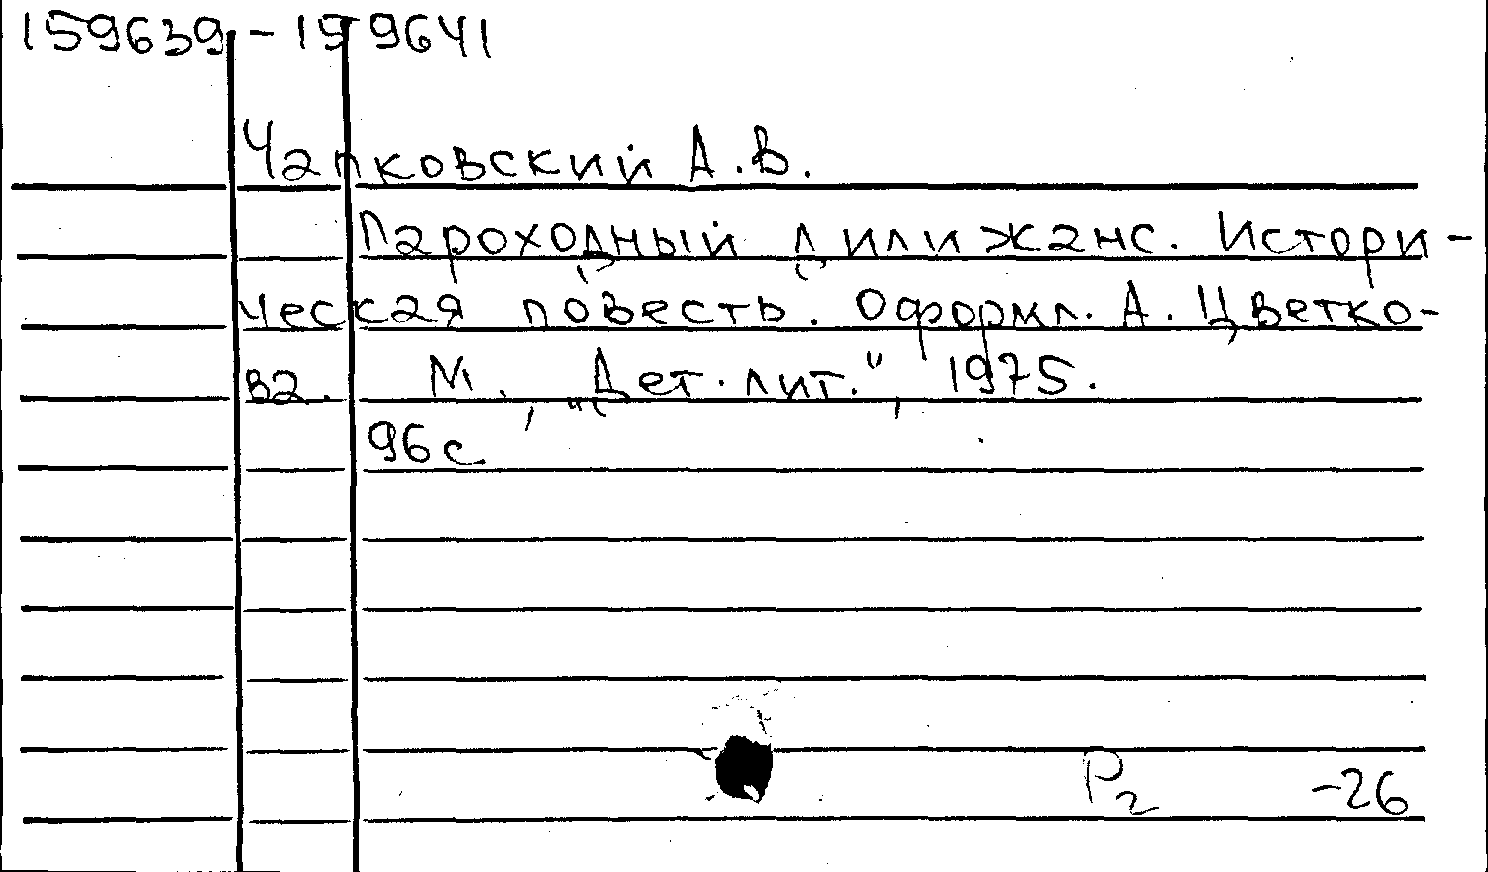 159639 - 159641
Чапковский А.В.
Пароходный дилижанс. Истори-
ческая повесть. Оформл. А. Цветко-
ва. М., „Дет. лит.", 1975.
96 с
Р2 -26